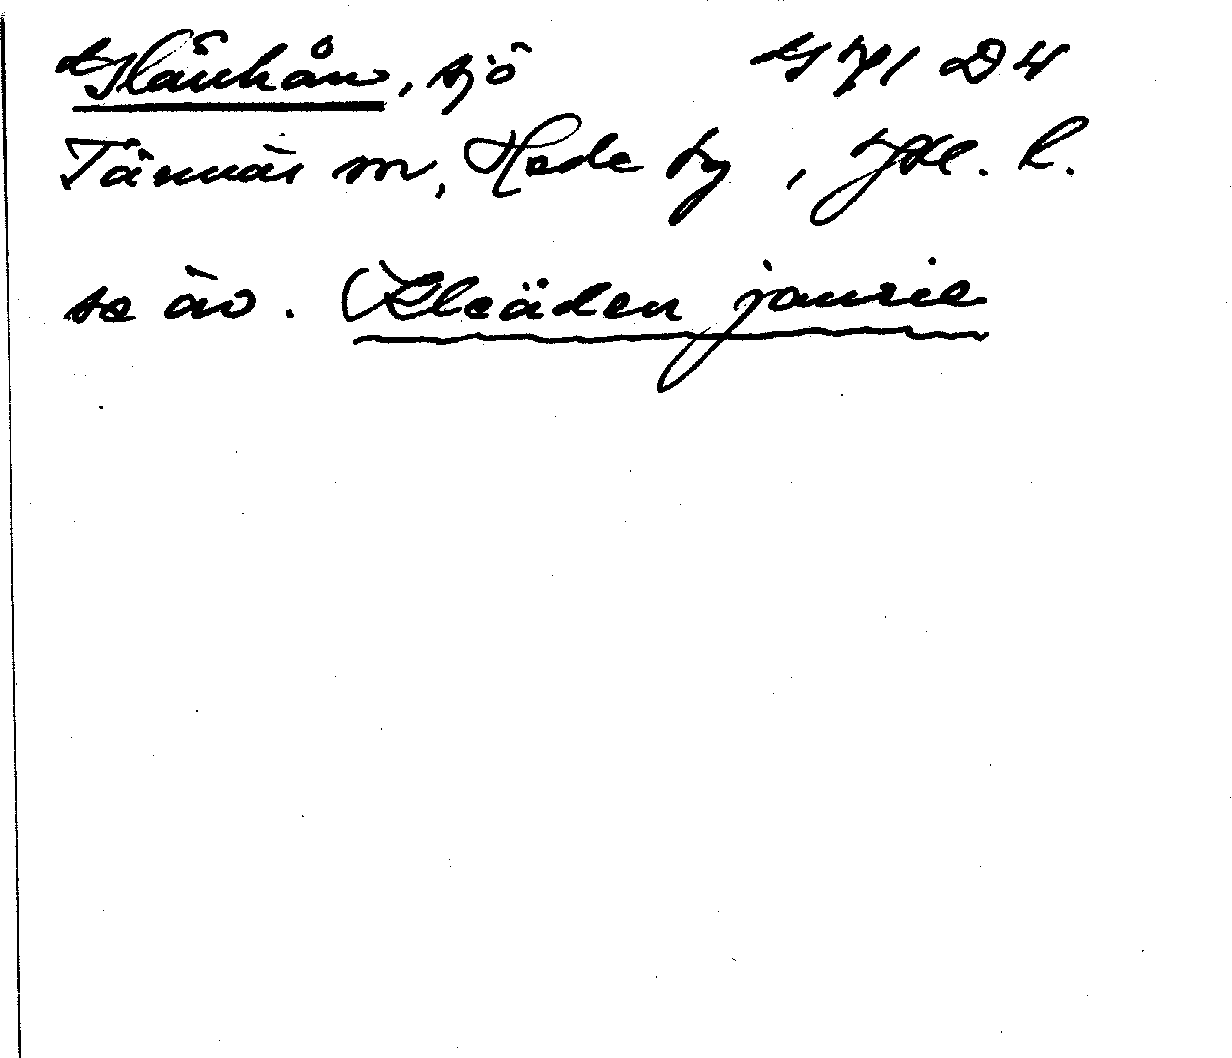 Glänhån, sjö G 71 D4
Tännäs sn, Hede tg, Jtl. l.
se äv. Kleäden jaurie